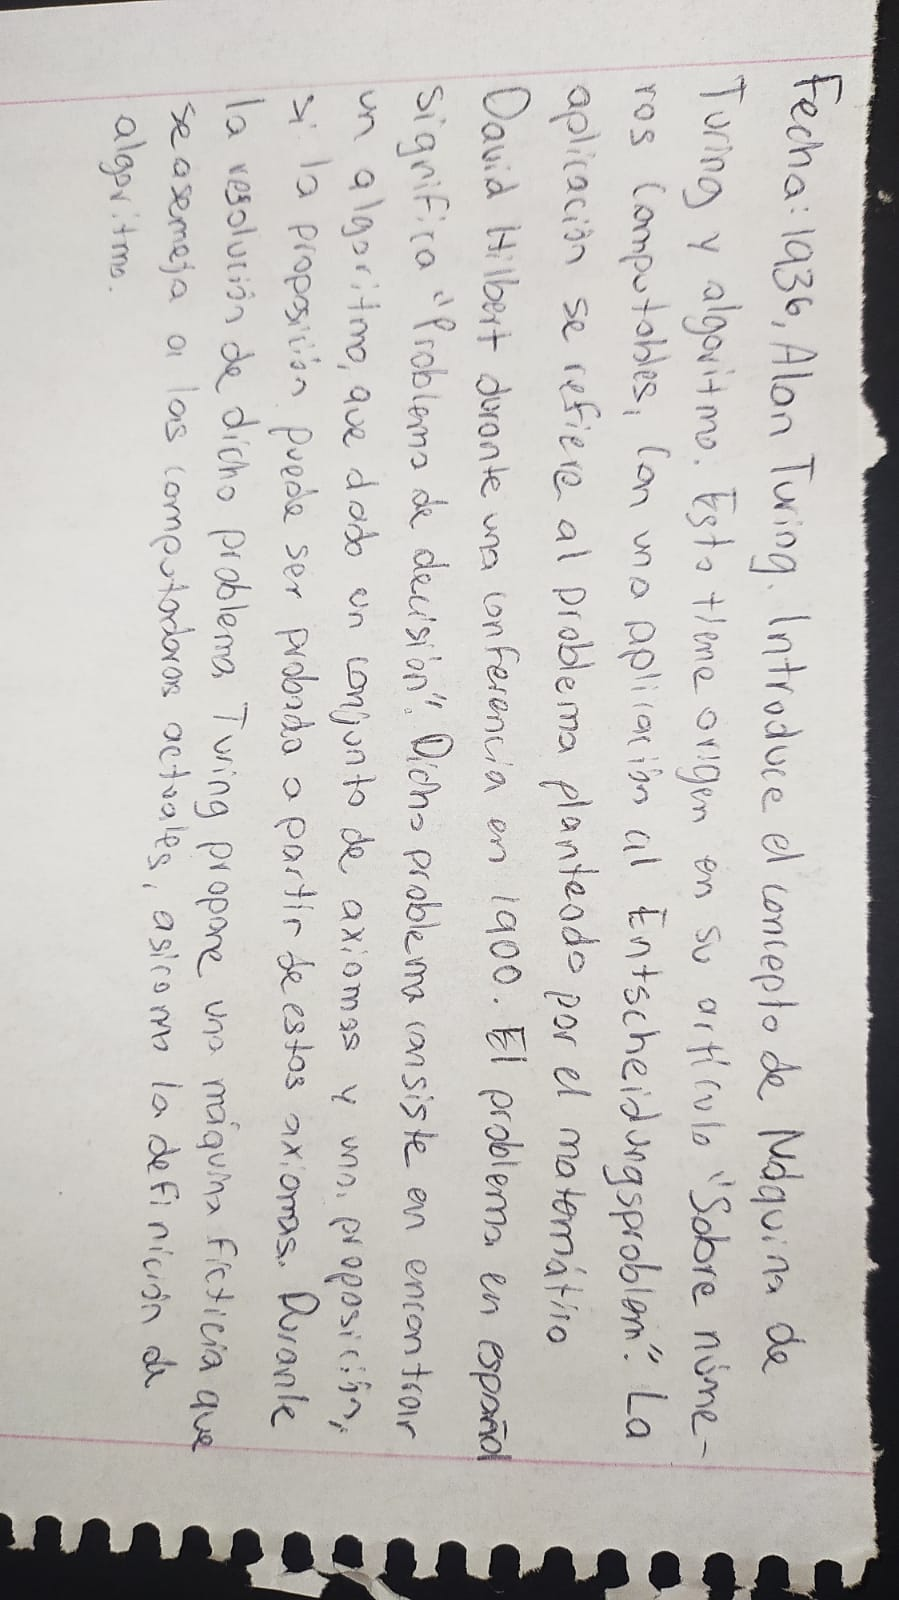 Fecha: 1936, Alan Turing. Introduce el concepto de Máquina de
Turing y algoritmo. Esto tiene origen en su artículo "Sobre núme-
ros computables, con una aplicación al Entscheidungsproblem". La
aplicación se refiere al problema planteado por el matemático
David Hilbert durante una conferencia en 1900. El problema en español
significa "Problema de decisión". Dicho problema consiste en encontrar
un algoritmo, que dado un conjunto de axiomas y una proposición,
si la proposición puede ser probada a partir de estos axiomas. Durante
la resolución de dicho problema Turing propone una máquina ficticia que
se asemeja a las computadoras actuales, asi como la definición de
algoritmo.